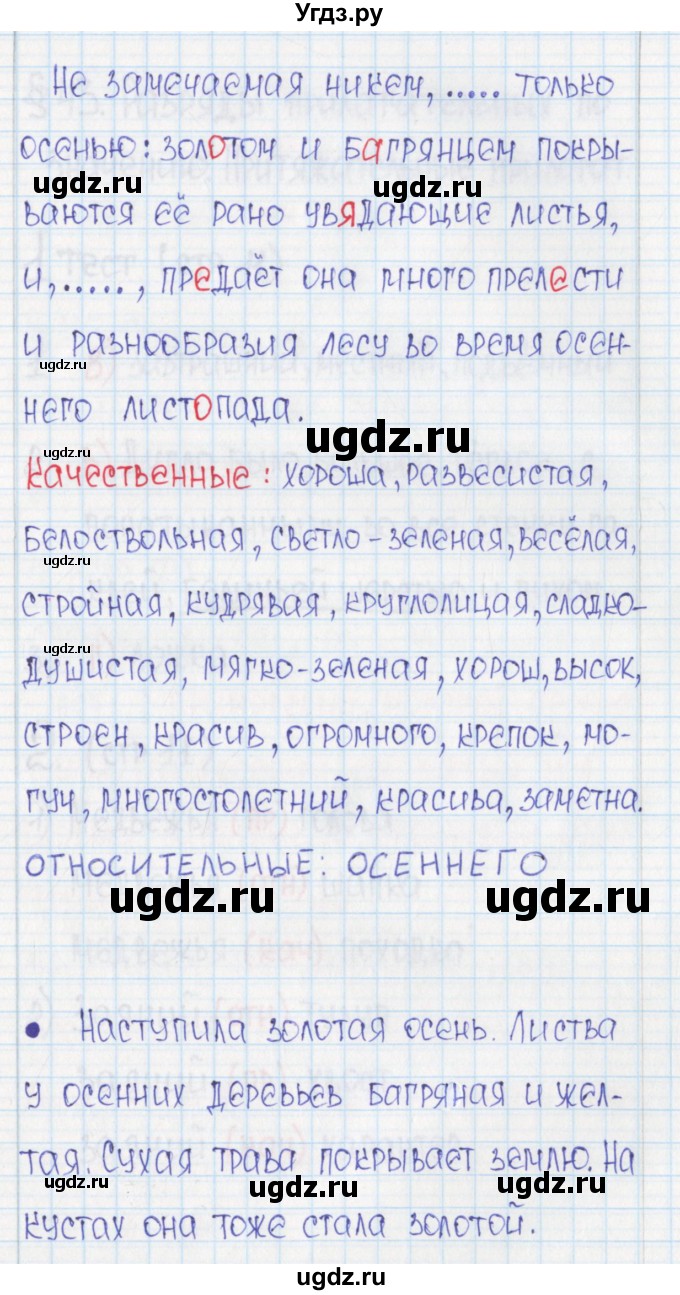 Угдз.ру
Не замечаемая никем, ..... только
осенью: золотом и багрянцем покры-
ugdz.ru ugdz.ru
ваются её рано увядающие листья,
и, ..... , предаёт она много прелести
ugdz.ru ugdz.ru
и разнообразия лесу во время осен-
ugdz.ru
него листопада.
ugdz.ru
ugdz.ru
Качественные: хороша, развесистая,
белоствольная, светло-зеленая, весёлая,
ugdz.ru
стройная, кудрявая, круглолицая, сладко-
ugdz.ru
душистая, мягко-зеленая, хорош, высок,
строен, красив, огромного, крепок, мо-
гуч, многостолетний, красива, заметна.
относительные: осеннего
ugdz.ru ugdz.ru
• Наступила золотая осень. Листва
у осенних деревьев багряная и жел-
тая. Сухая трава покрывает землю. На
ugdz.ru ugdz.ru ugdz.ru
кустах она тоже стала золотой.
ugdz.ru